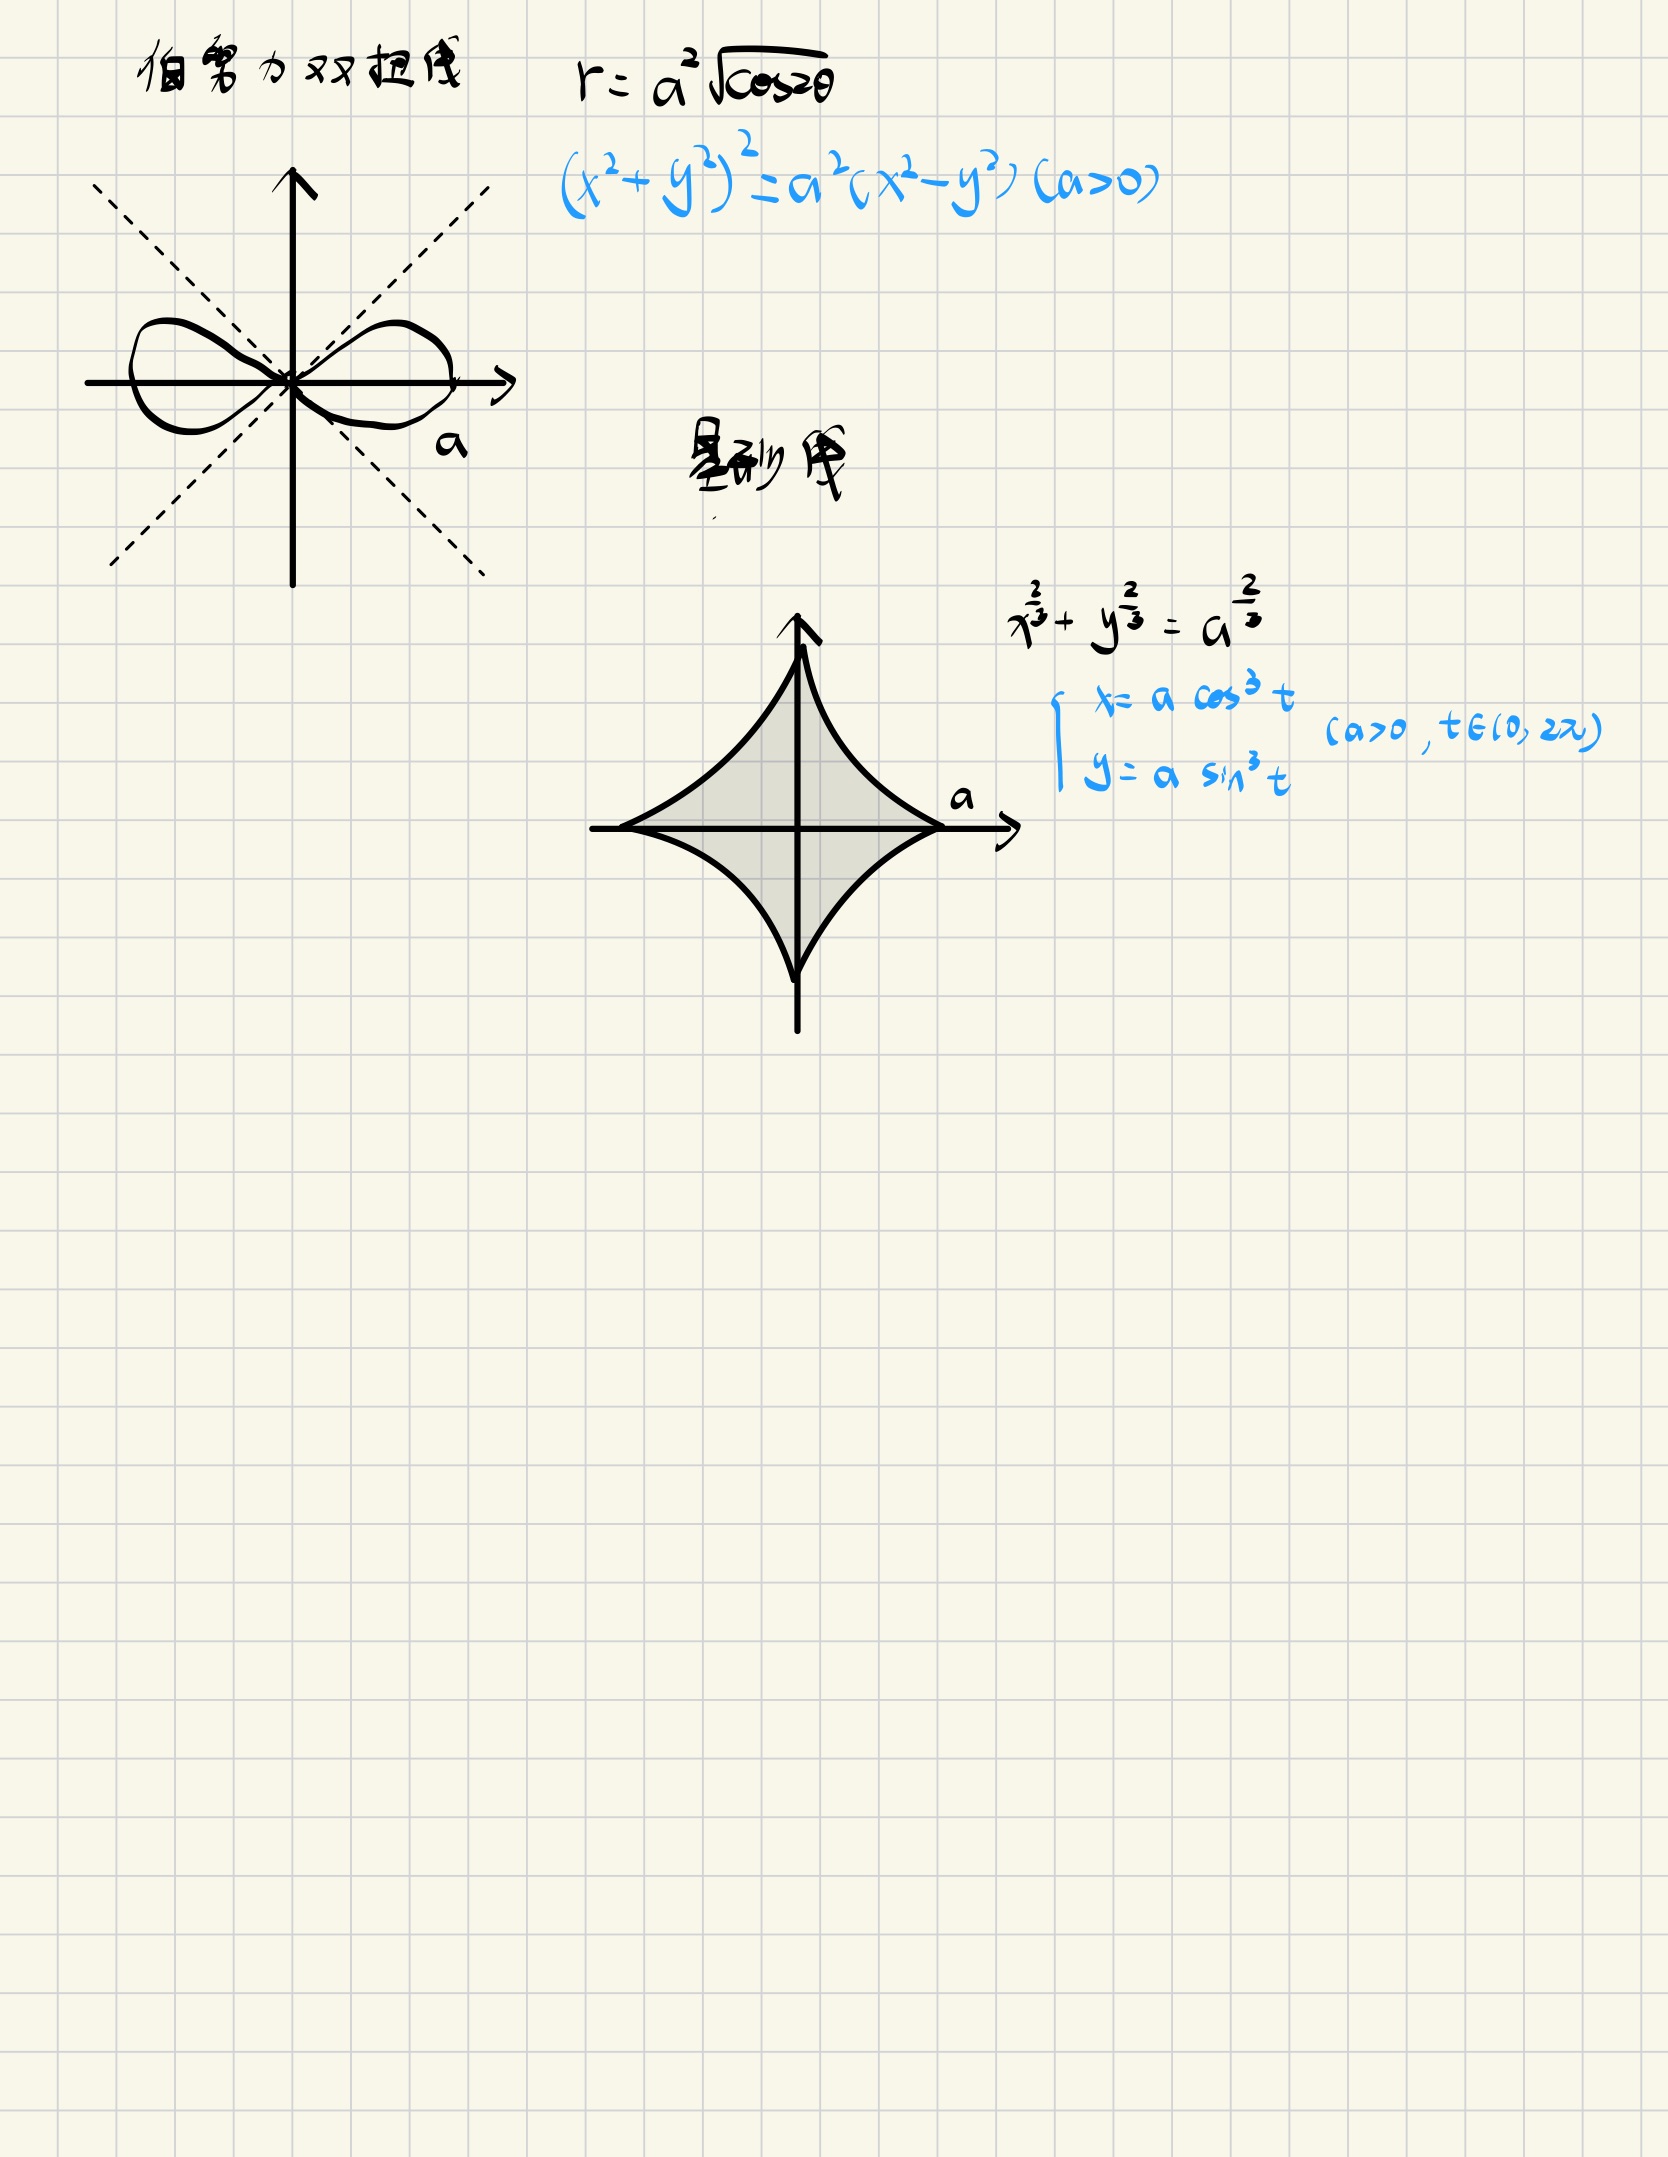 伯努力双扭线 r = a²√cos2θ
(x²+y²)² = a²(x²-y²) (a>0)
a
星形线
x^{2/3} + y^{2/3} = a^{2/3}
{ x = a cos³ t
(a>0, t∈(0, 2π)
y = a sin³ t
a